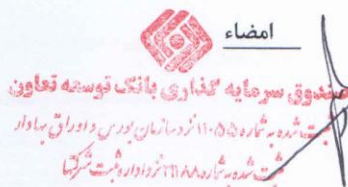 امضاء
صندوق سرمایه گذاری بانک توسعه تعاون
ثبت شده به شماره ۱۱۰۵۵ نزد سازمان بورس و اوراق بهادار
ثبت شده به شماره نزد اداره ثبت شرکتها